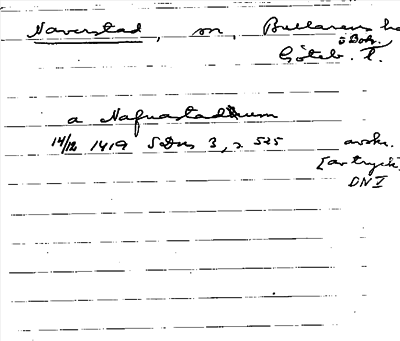 Naverstad, sn, Bullarens hd
ö Boh.
Göteb. l.
a Nafnastadhum
14/12 1419 SDns 3, s 525 avskr.
[av tryck
DN I